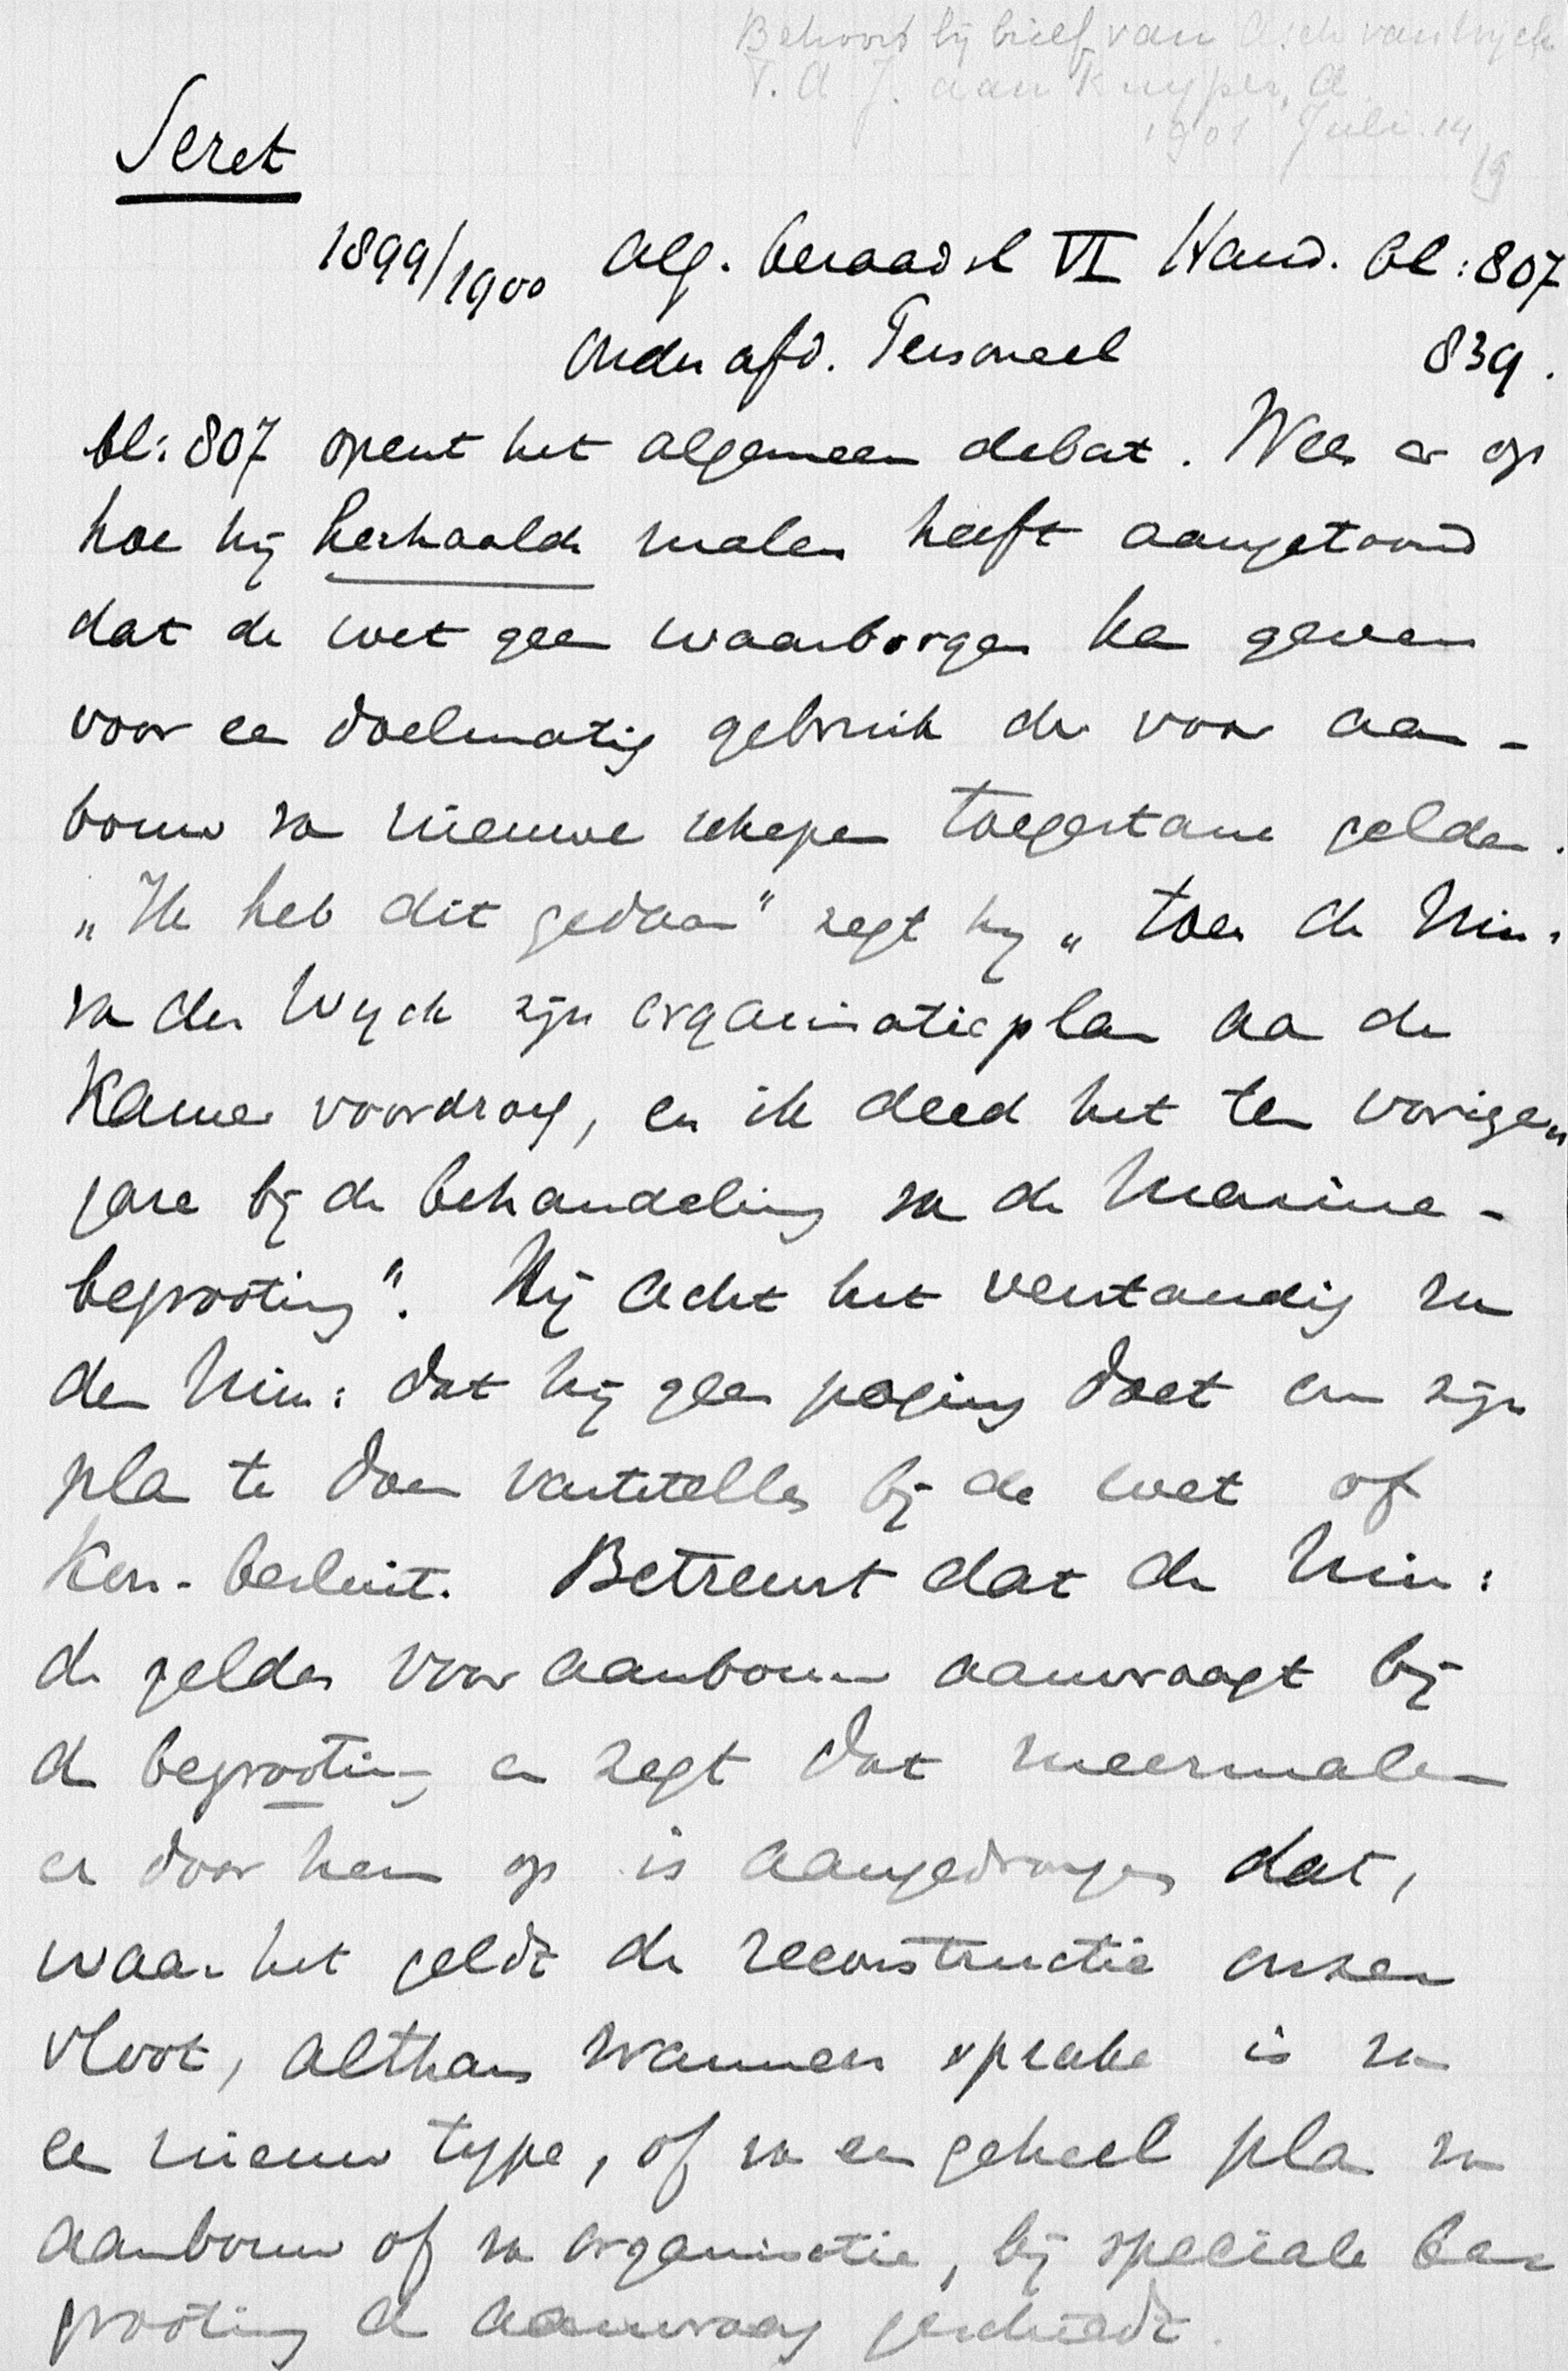 Behoort bij brief van Asch van Wyck
T. A J. aan Kuyper, A.
1901 Juli 14
19
Seret
1899/1900 Alg. beraadsl VI Hand. bl: 807
Onder afd. Personeel 839.
bl: 807 opent het algemeen debat. Wees er op
hoe hij herhaalde malen heeft aangetoond
dat de wet geen waarborgen kan geven
voor een doelmatig gebruik der voor aan-
bouw van nieuwe schepen toegestane gelden.
„Ik heb dit gedaan" zegt hij „toen de Min:
van der Wyck zijn organisatieplan aan de
Kamer voordroeg, en ik deed het ten vorigen
jare bij de behandeling van de Marine-
begrooting". Hij acht het verstandig van
den Min: dat hij geen poging doet om zijn
plan te doen vaststellen bij de wet of
Kon. besluit. Betreurt dat de Min:
de gelden voor aanbouw aanvraagt bij
de begrooting en zegt dat meermalen
er door hem op is aangedrongen dat,
waar het geldt de reconstructie onzer
vloot, althans wanneer sprake is van
een nieuw type, of van een geheel plan van
aanbouw of van organisatie, bij speciale be-
grooting de aanvraag geschiedt.